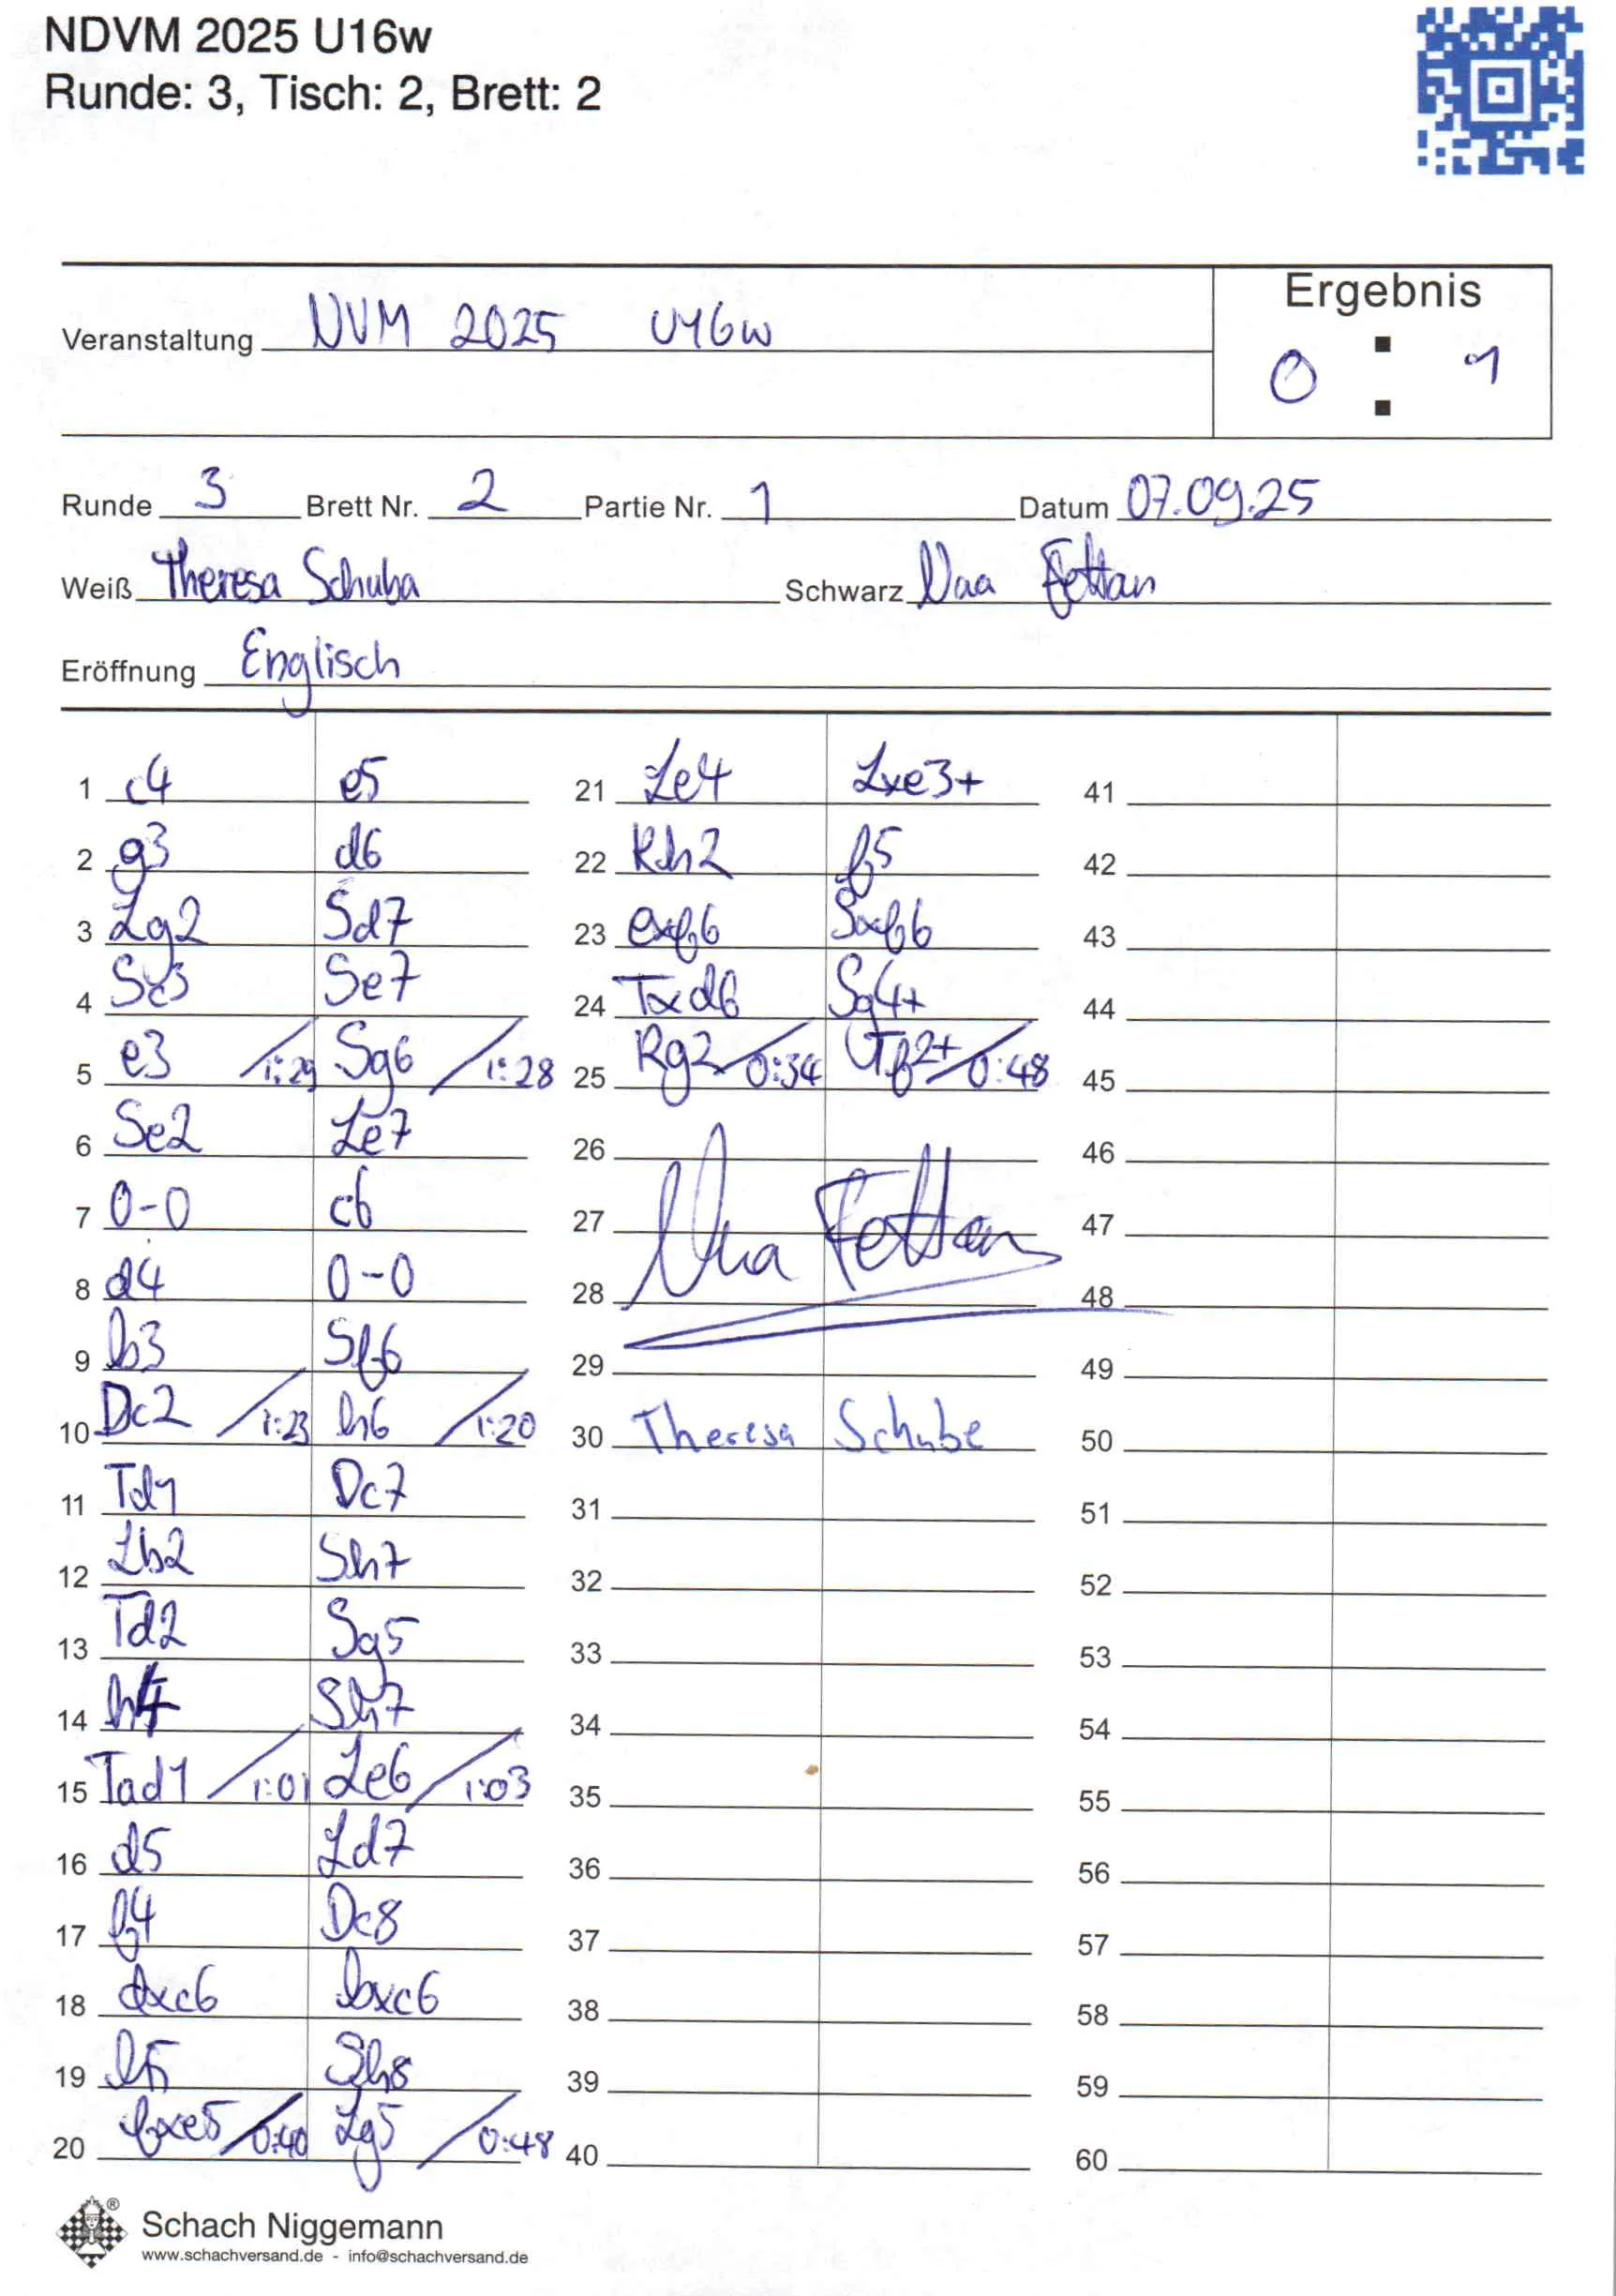 NDVM 2025 U16w
Runde: 3, Tisch: 2, Brett: 2
Ergebnis
Veranstaltung NVM 2025 U16w
0 : 1
Runde 3 Brett Nr. 2 Partie Nr. 1 Datum 07.09.25
Weiß Theresa Schuba Schwarz Fettan
Eröffnung Englisch
1 c4 e5 21 Le4 Lxe3+ 41
2 g3 d6 22 Kh2 f5 42
3 Lg2 Sd7 23 exf6 Sxf6 43
4 Sc3 Se7 24 Txd6 Sg4+ 44
5 e3 /1:29 Sg6 /1:28 25 Kg2 /0:34 Tf2+ /0:48 45
6 Se2 Le7 26 46
7 0-0 c6 27 Fettan 47
8 d4 0-0 28 48
9 b3 Sf6 29 49
10 Dc2 /1:23 h6 /1:20 30 Theresa Schube 50
11 Td1 Dc7 31 51
12 Lb2 Sh7 32 52
13 Td2 Sg5 33 53
14 h4 Sh7 34 54
15 Tad1 /1:01 Le6 /1:03 35 55
16 d5 Ld7 36 56
17 f4 Dc8 37 57
18 dxc6 bxc6 38 58
19 h5 Sh8 39 59
20 fxe5 /0:40 Lg5 /0:48 40 60
® Schach Niggemann
www.schachversand.de - info@schachversand.de